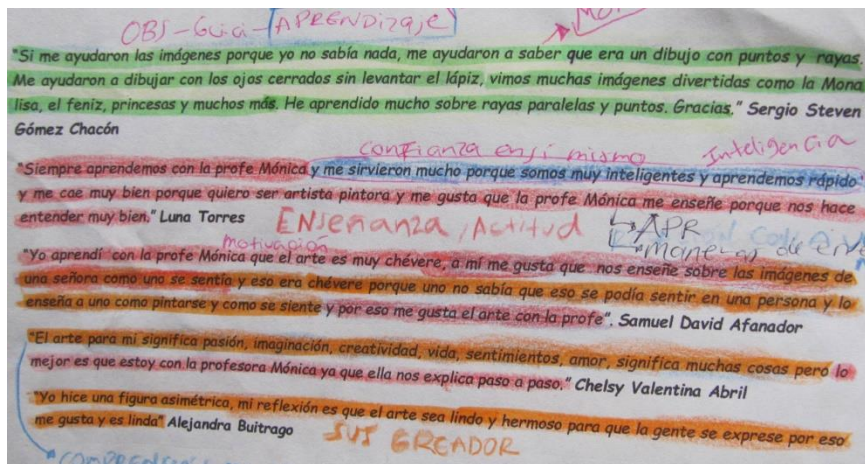 OBS - Guia - APRENDizaje
"Si me ayudaron las imágenes porque yo no sabía nada, me ayudaron a saber que era un dibujo con puntos y rayas.
Me ayudaron a dibujar con los ojos cerrados sin levantar el lápiz, vimos muchas imágenes divertidas como la Mona
lisa, el feniz, princesas y muchos más. He aprendido mucho sobre rayas paralelas y puntos. Gracias." Sergio Steven
Gómez Chacón
confianza en si mismo Inteligencia
"Siempre aprendemos con la profe Mónica y me sirvieron mucho porque somos muy inteligentes y aprendemos rápido
y me cae muy bien porque quiero ser artista pintora y me gusta que la profe Mónica me enseñe porque nos hace
entender muy bien." Luna Torres
ENSEÑANZA, Actitud APR
motivación maneras de
"Yo aprendí con la profe Mónica que el arte es muy chévere, a mí me gusta que nos enseñe sobre las imágenes de
una señora como una se sentía y eso era chévere porque uno no sabía que eso se podía sentir en una persona y lo
enseña a uno como pintarse y como se siente y por eso me gusta el arte con la profe". Samuel David Afanador
"El arte para mi significa pasión, imaginación, creatividad, vida, sentimientos, amor, significa muchas cosas pero lo
mejor es que estoy con la profesora Mónica ya que ella nos explica paso a paso." Chelsy Valentina Abril
"Yo hice una figura asimétrica, mi reflexión es que el arte sea lindo y hermoso para que la gente se exprese por eso
me gusta y es linda" Alejandra Buitrago
SUJ CREADOR